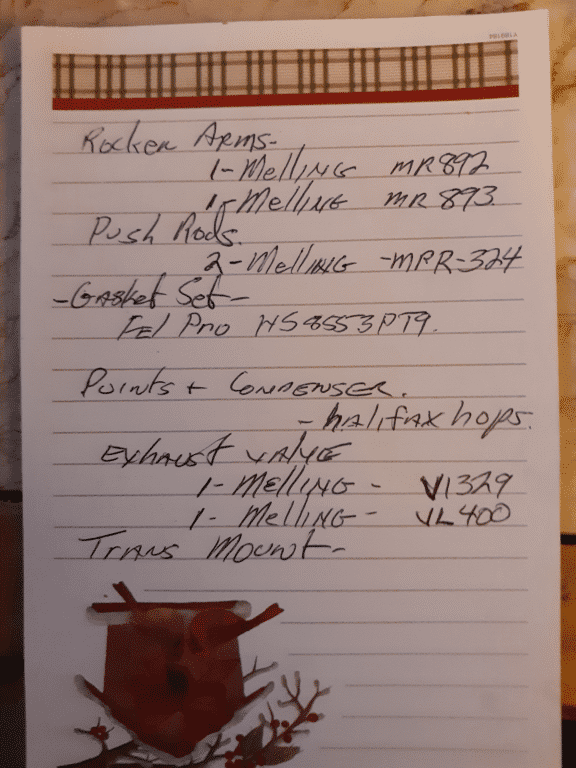 Rocker Arms-
1-Melling MR892
1-Melling MR893
Push Rods.
2-Melling -MPR-324
-Gasket Set-
Fel Pro HS8553PT9.
Points + Condenser.
-halifax hops.
Exhaust valve
1-Melling- V1329
1-Melling- VL400
Trans Mount-